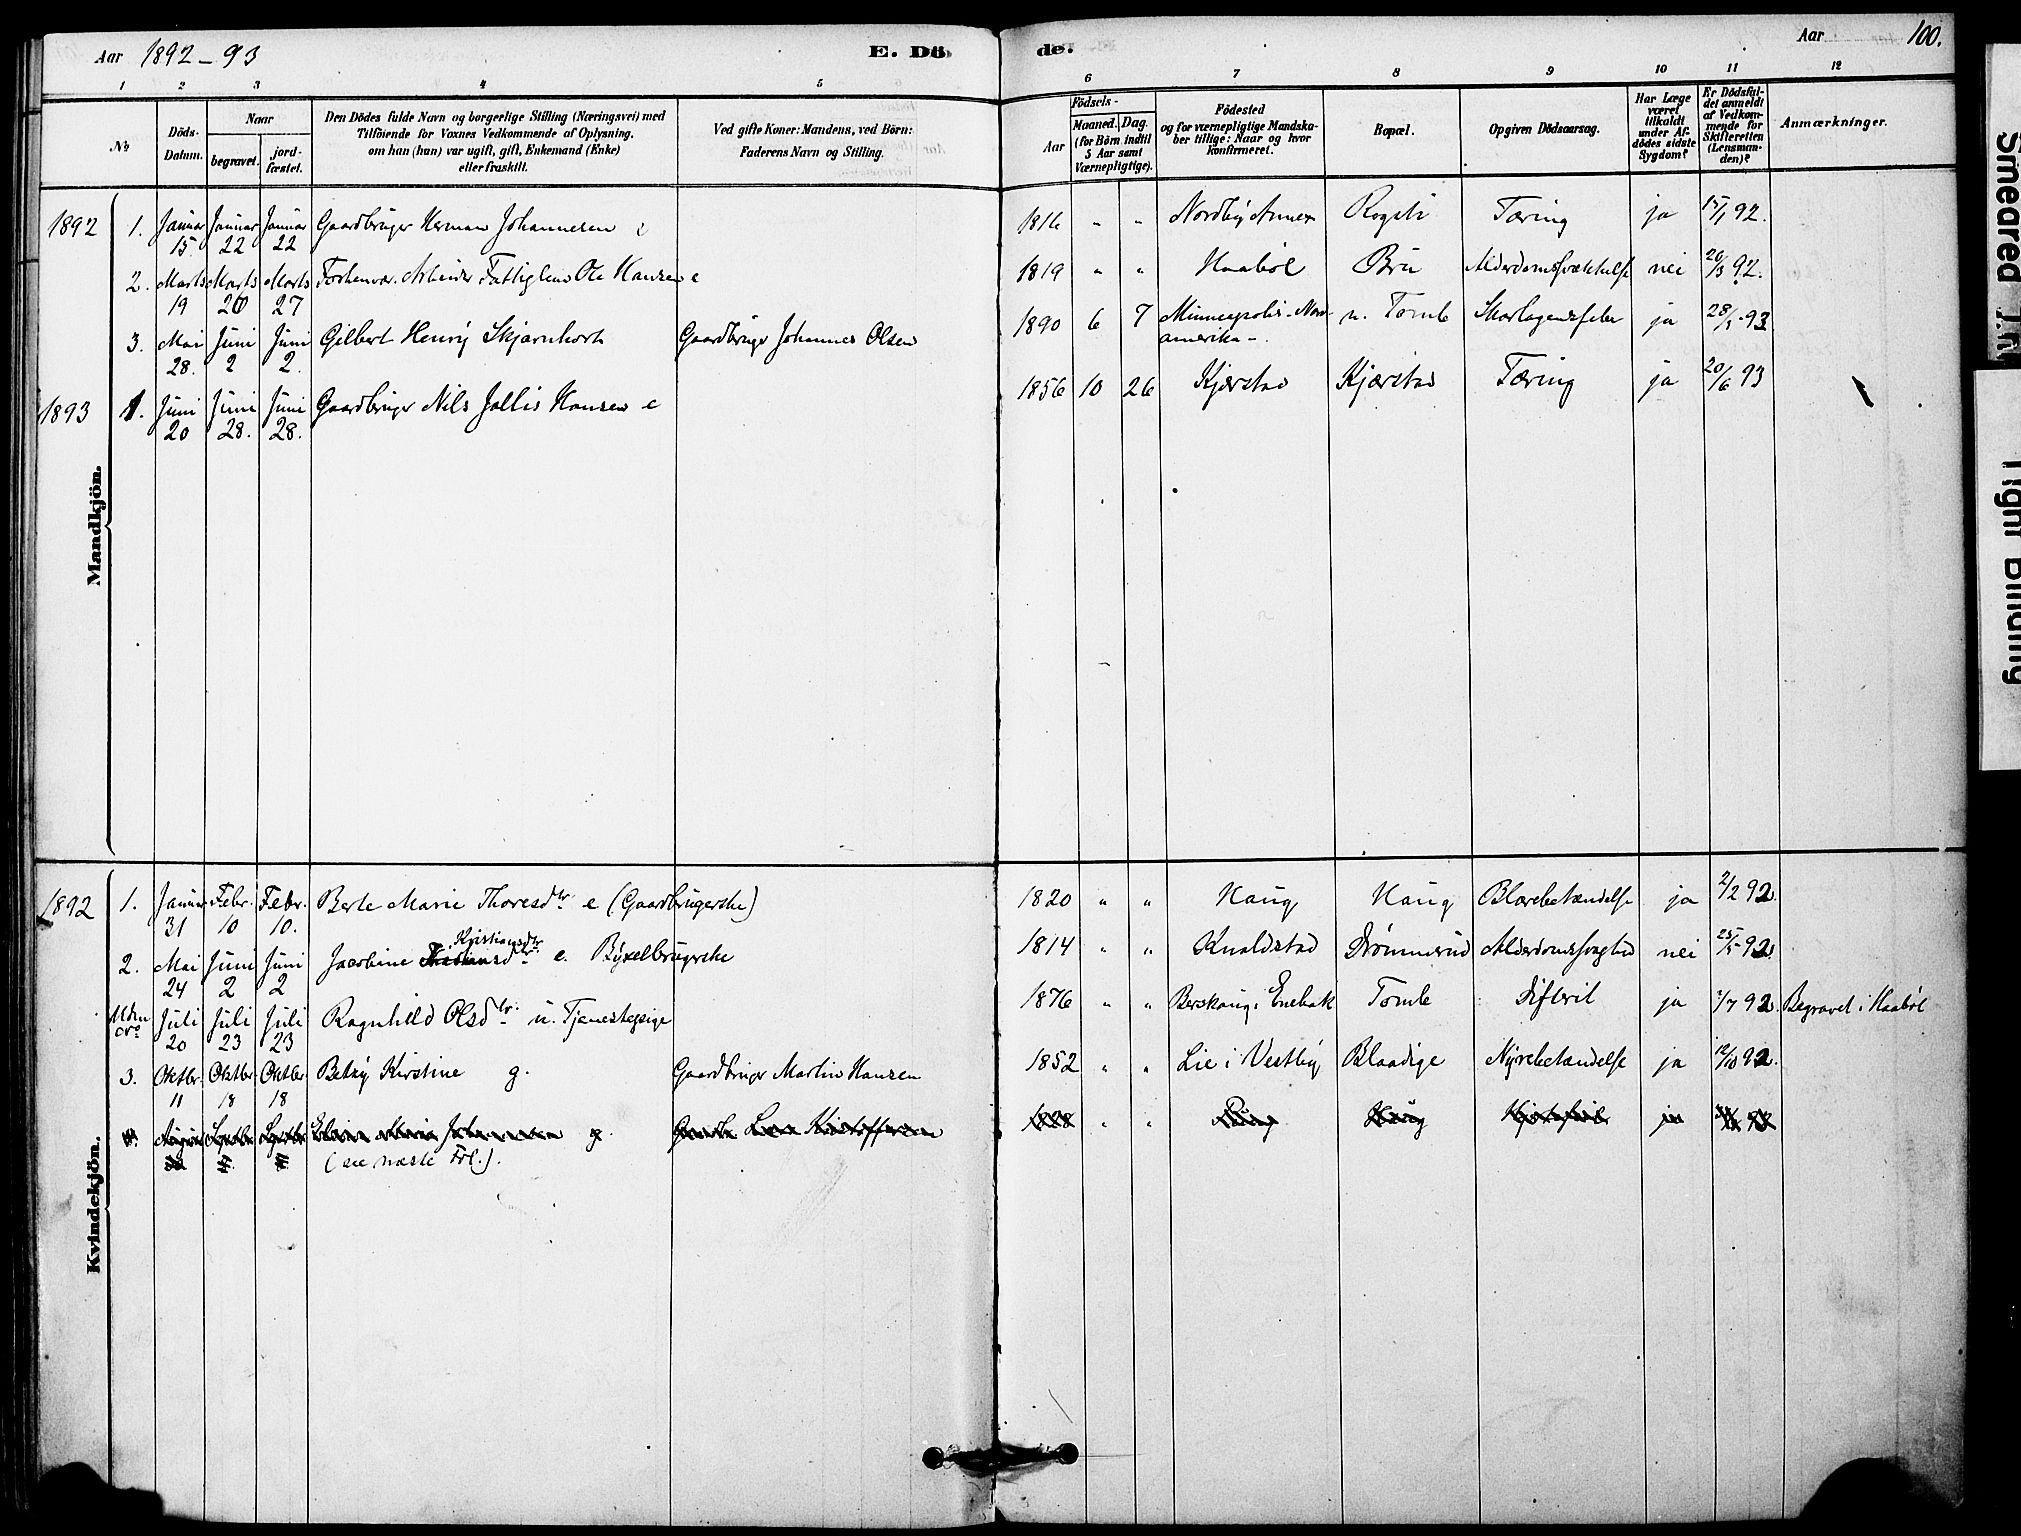 Aar 1892-93 E. Dö de. Aar 100.
1 2 3 4 5 6 7 8 9 10 11 12
No
Döds-Datum.
Naar
begravet.
jord-fæstet.
Den Dödes fulde Navn og borgerlige Stilling (Næringsvei) med
Tilföiende for Voxnes Vedkommende af Oplysning,
om han (hun) var ugift, gift, Enkemand (Enke)
eller fraskilt.
Ved gifte Koner: Mandens, ved Börn:
Faderens Navn og Stilling.
Födsels-
Aar
Maaned. Dag
(for Börn indtil
5 Aar samt
Værnepligtige).
Födested
og for værnepligtige Mandska-
ber tillige: Naar og hvor
konfirmeret.
Bopæl.
Opgiven Dödsaarsag.
Har Læge
været
tilkaldt
under Af-
dödes sidste
Sygdom?
Er Dödsfal-
det anmeldt
af Vedkom-
mende for
Skifteretten
(Lensman-
den)?
Anmærkninger.
Mandkjön.
1892 1. Januar 15. Januar 22 Januar 22 Gaardbruger Herman Johannesen e 1816 " " Nordby Annex Rogsti Tæring ja 15/1 92.
2. Marts 19 Marts 26 Marts 27 Forhenvær. Arbeider Fattiglem Ole Hansen e 1819 " " Haabøl Bru Alderdomssvækkelse nei 20/3 92.
3. Mai 28. Juni 2 Juni 2. Gilbert Henry Skjarnhort Gaardbruger Johannes Olsen 1890 6 7 Minneapolis-Nord-amerika-. n. Tomb Skarlagensfeber ja 28/ 93
1893 1. Juni 20 Juni 28. Juni 28. Gaardbruger Nils Jallis Hansen e 1856 10 26 Kjærstad Kjærstad Tæring ja 20/6 93
Kvindekjön.
1892 1. Januar 31 Febr. 10 Febr. 10. Berte Marie Thoresdtr e (Gaardbrugerske) 1820 " " Haug Haug Blærebetændelse ja 2/2 92.
2. Mai 24 Juni 2 Juni 2 Jacobine Kristiansdtr e. Byxelbrugerske 1814 " " Knaldstad Drømmerud Alderdomssvaghed nei 25/5 92.
Juli 20 Juli 23 Juli 23 Ragnhild Olsdtr. u. Tjenestepige 1876 " " Berskaug i Enebak Tomb Difterit ja /7 92. Begravet i Haabøl
3. Oktbr. 11 Oktbr. 18 Oktbr. 18 Betsy Kirstine g. Gaardbruger Martin Hansen 1852 " " Lie i Vestby Blaadige Nyrebetændelse ja 12/10 92.
(see næste Fol.).
Smeared
Tight Binding